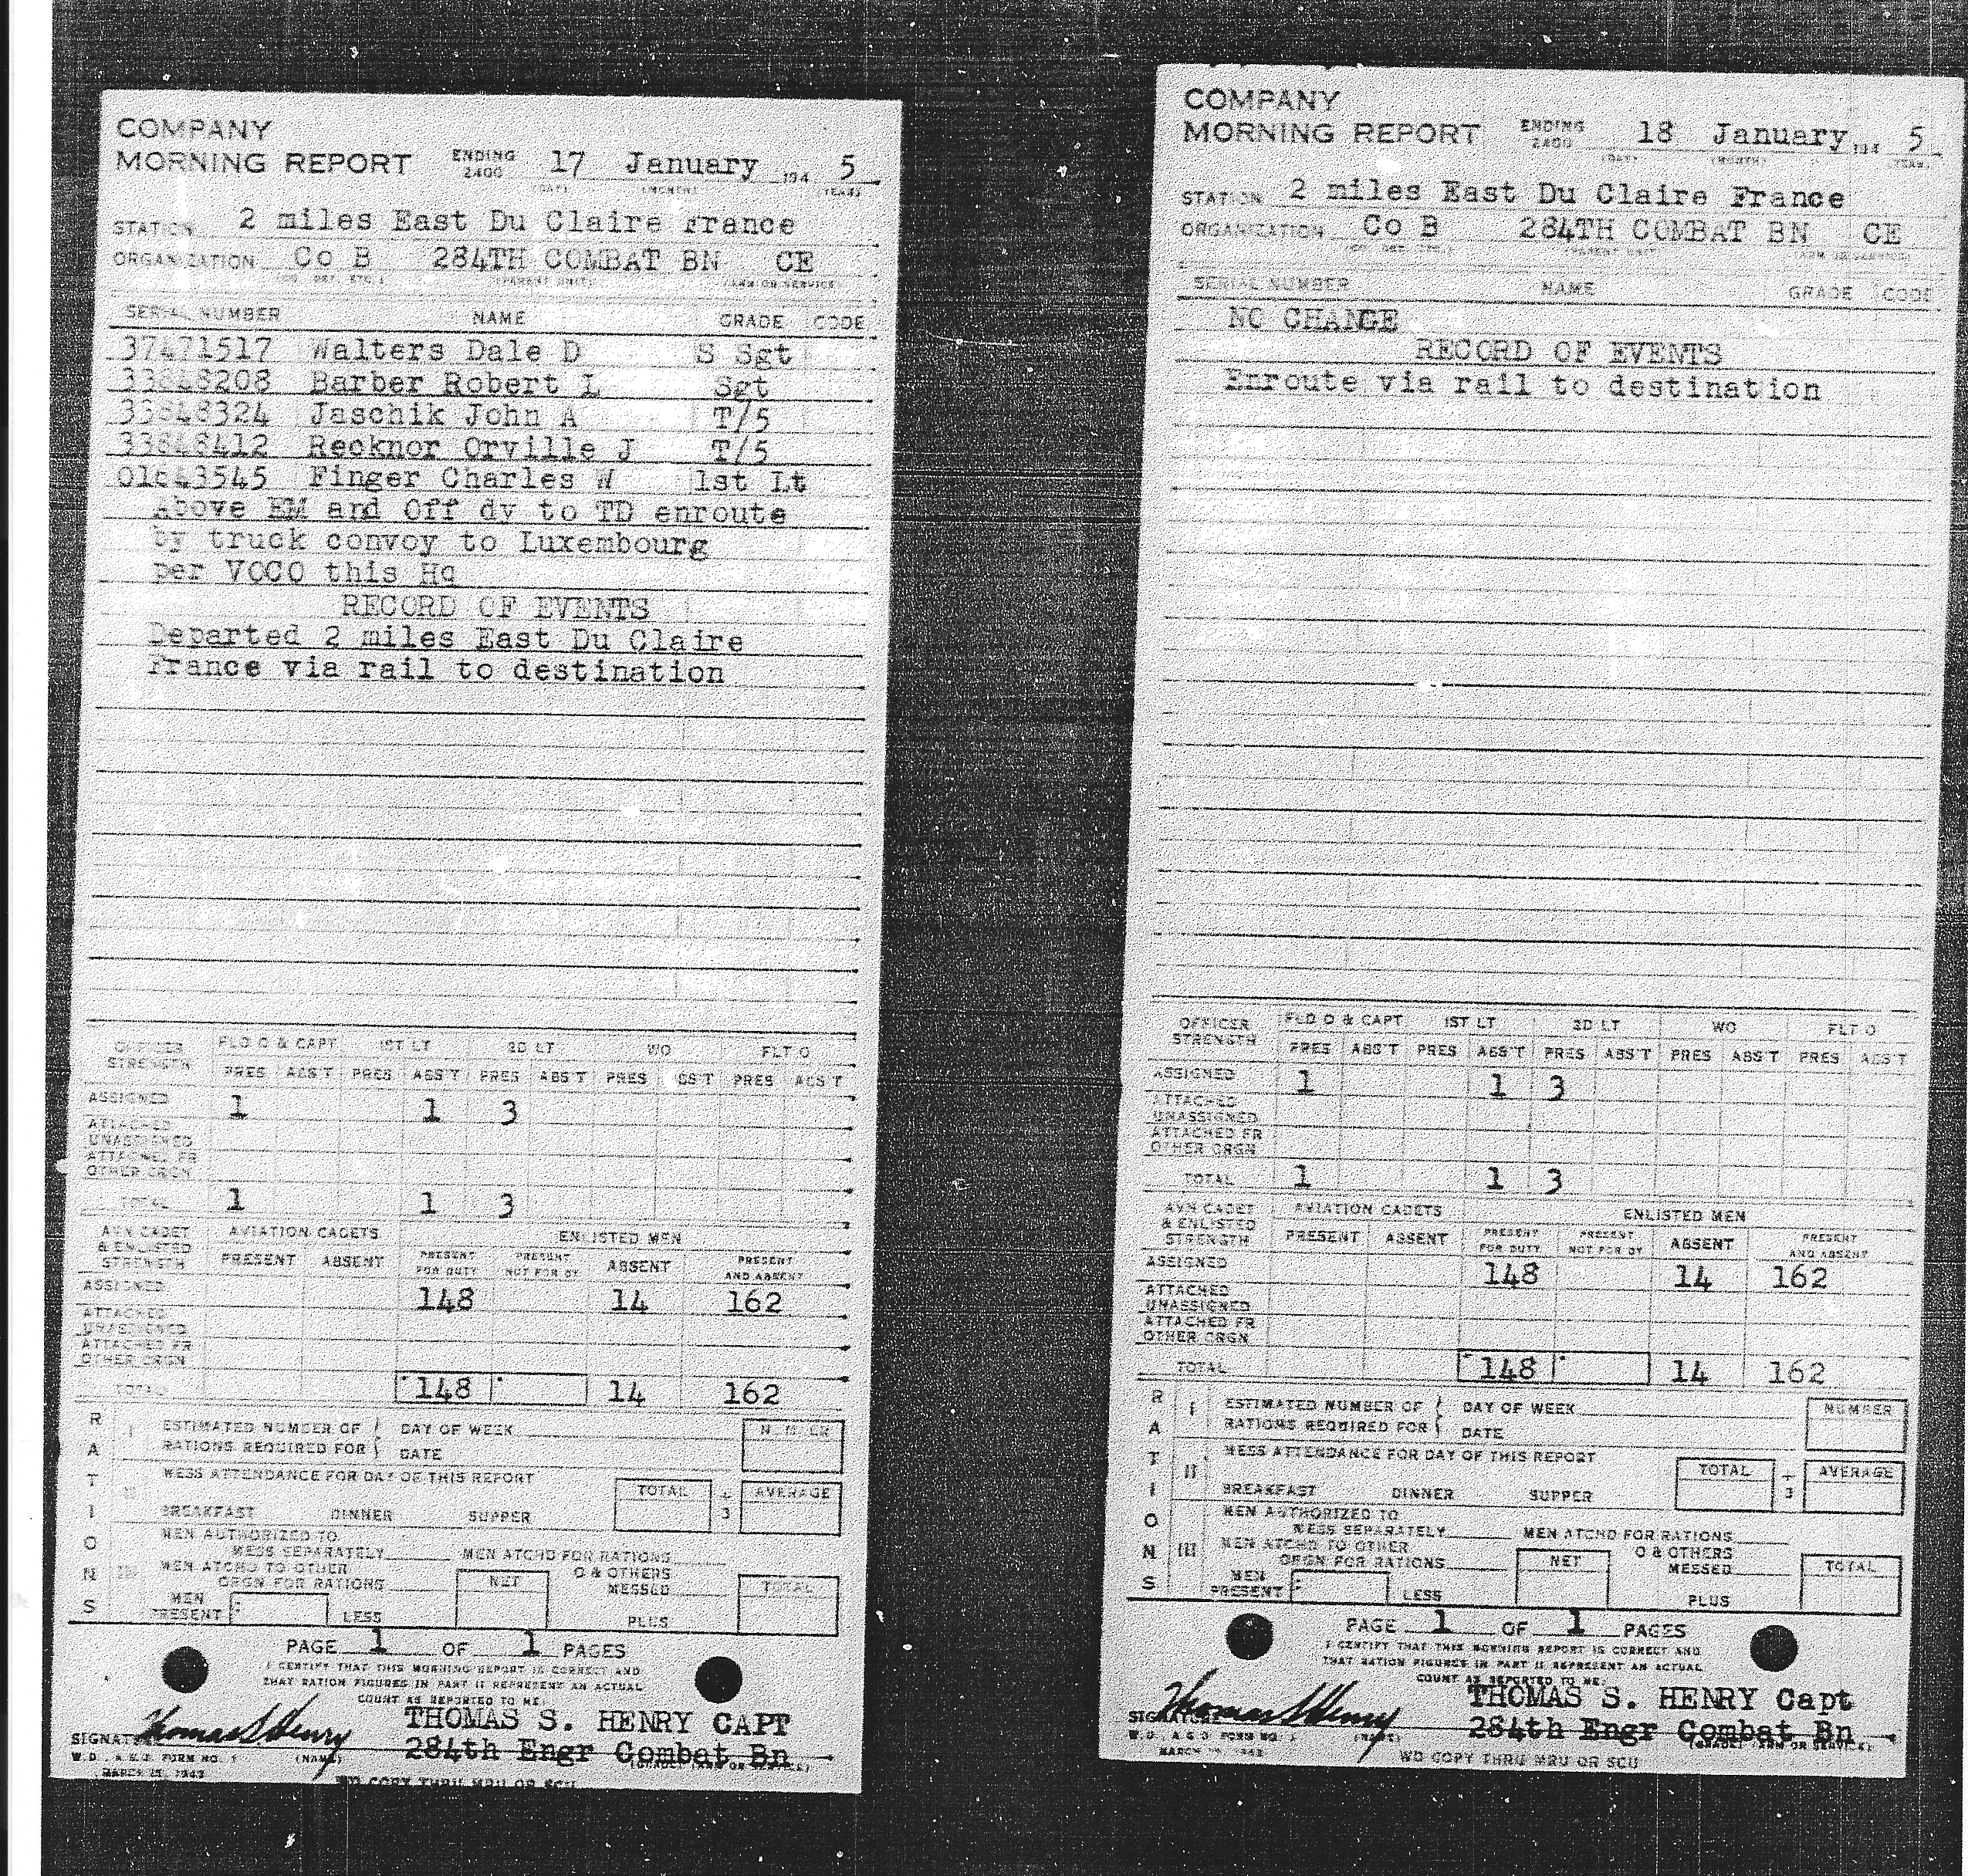 COMPANY
MORNING REPORT ENDING 2400 17 January 194 5
(DAY) (MONTH) (YEAR)
STATION 2 miles East Du Claire France
ORGANIZATION Co B 284TH COMBAT BN CE
(CO, DET, ETC.) (PARENT UNIT) (ARM OR SERVICE)
SERIAL NUMBER NAME GRADE CODE
37471517 Walters Dale D S Sgt
33848208 Barber Robert L Sgt
33848324 Jaschik John A T/5
33848412 Recknor Orville J T/5
Finger Charles W 1st Lt
Above EM and Off dy to TD enroute
by truck convoy to Luxembourg
per VOCO this Hq
RECORD OF EVENTS
Departed 2 miles East Du Claire
France via rail to destination
OFFICER STRENGTH FLD O & CAPT 1ST LT 2D LT WO FLT O
PRES ABS'T PRES ABS'T PRES ABS'T PRES ABS'T PRES ABS'T
ASSIGNED 1 1 3
ATTACHED UNASSIGNED
ATTACHED FR OTHER ORGN
TOTAL 1 1 3
AVN CADET & ENLISTED STRENGTH AVIATION CADETS ENLISTED MEN
PRESENT ABSENT PRESENT FOR DUTY PRESENT NOT FOR DY ABSENT PRESENT AND ABSENT
ASSIGNED 148 14 162
ATTACHED UNASSIGNED
ATTACHED FR OTHER ORGN
TOTAL 148 14 162
RATIONS
I ESTIMATED NUMBER OF RATIONS REQUIRED FOR DAY OF WEEK DATE NUMBER
II MESS ATTENDANCE FOR DAY OF THIS REPORT TOTAL ÷ 3 AVERAGE
BREAKFAST DINNER SUPPER
III MEN AUTHORIZED TO MESS SEPARATELY MEN ATCHD FOR RATIONS
MEN ATCHD TO OTHER ORGN FOR RATIONS NET O & OTHERS MESSED TOTAL
MEN PRESENT LESS PLUS
PAGE 1 OF 1 PAGES
I CERTIFY THAT THIS MORNING REPORT IS CORRECT AND
THAT RATION FIGURES IN PART II REPRESENT AN ACTUAL
COUNT AS REPORTED TO ME.
THOMAS S. HENRY CAPT
SIGNATURE Thomas S Henry 284th Engr Combat Bn
W.D., A.G.O. FORM NO. 1 (NAME) (GRADE) (ARM OR SERVICE)
MARCH 15, 1943
WD COPY THRU MRU OR SCU
COMPANY
MORNING REPORT ENDING 2400 18 January 194 5
(DAY) (MONTH) (YEAR)
STATION 2 miles East Du Claire France
ORGANIZATION Co B 284TH COMBAT BN CE
(CO, DET, ETC.) (PARENT UNIT) (ARM OR SERVICE)
SERIAL NUMBER NAME GRADE CODE
NO CHANGE
RECORD OF EVENTS
Enroute via rail to destination
OFFICER STRENGTH FLD O & CAPT 1ST LT 2D LT WO FLT O
PRES ABS'T PRES ABS'T PRES ABS'T PRES ABS'T PRES ABS'T
ASSIGNED 1 1 3
ATTACHED UNASSIGNED
ATTACHED FR OTHER ORGN
TOTAL 1 1 3
AVN CADET & ENLISTED STRENGTH AVIATION CADETS ENLISTED MEN
PRESENT ABSENT PRESENT FOR DUTY PRESENT NOT FOR DY ABSENT PRESENT AND ABSENT
ASSIGNED 148 14 162
ATTACHED UNASSIGNED
ATTACHED FR OTHER ORGN
TOTAL 148 14 162
RATIONS
I ESTIMATED NUMBER OF RATIONS REQUIRED FOR DAY OF WEEK DATE NUMBER
II MESS ATTENDANCE FOR DAY OF THIS REPORT TOTAL ÷ 3 AVERAGE
BREAKFAST DINNER SUPPER
III MEN AUTHORIZED TO MESS SEPARATELY MEN ATCHD FOR RATIONS
MEN ATCHD TO OTHER ORGN FOR RATIONS NET O & OTHERS MESSED TOTAL
MEN PRESENT LESS PLUS
PAGE 1 OF 1 PAGES
I CERTIFY THAT THIS MORNING REPORT IS CORRECT AND
THAT RATION FIGURES IN PART II REPRESENT AN ACTUAL
COUNT AS REPORTED TO ME.
THOMAS S. HENRY Capt
SIGNATURE Thomas S Henry 284th Engr Combat Bn
W.D., A.G.O. FORM NO. 1 (NAME) (GRADE) (ARM OR SERVICE)
MARCH 15, 1943
WD COPY THRU MRU OR SCU